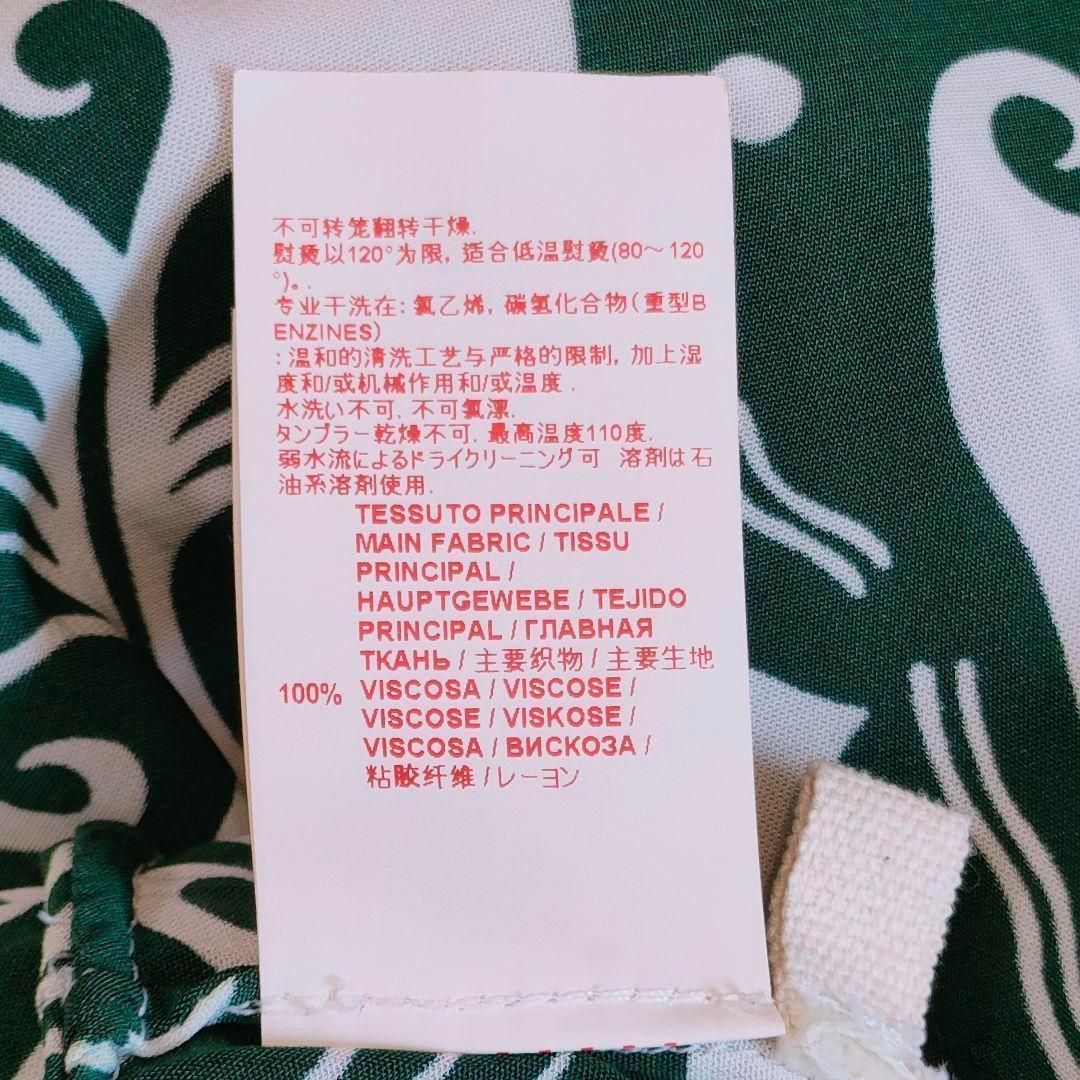 不可转笼翻转干燥.
熨烫以120°为限, 适合低温熨烫(80～120
°)。.
专业干洗在: 氯乙烯, 碳氢化合物(重型B
ENZINES)
: 温和的清洗工艺与严格的限制, 加上湿
度和/或机械作用和/或温度 .
水洗い不可. 不可氯漂.
タンブラー乾燥不可. 最高温度110度.
弱水流によるドライクリーニング可 溶剤は石
油系溶剤使用.
TESSUTO PRINCIPALE /
MAIN FABRIC / TISSU
PRINCIPAL /
HAUPTGEWEBE / TEJIDO
PRINCIPAL / ГЛАВНАЯ
ТКАНЬ / 主要织物 / 主要生地
100% VISCOSA / VISCOSE /
VISCOSE / VISKOSE /
VISCOSA / ВИСКОЗА /
粘胶纤维 / レーヨン